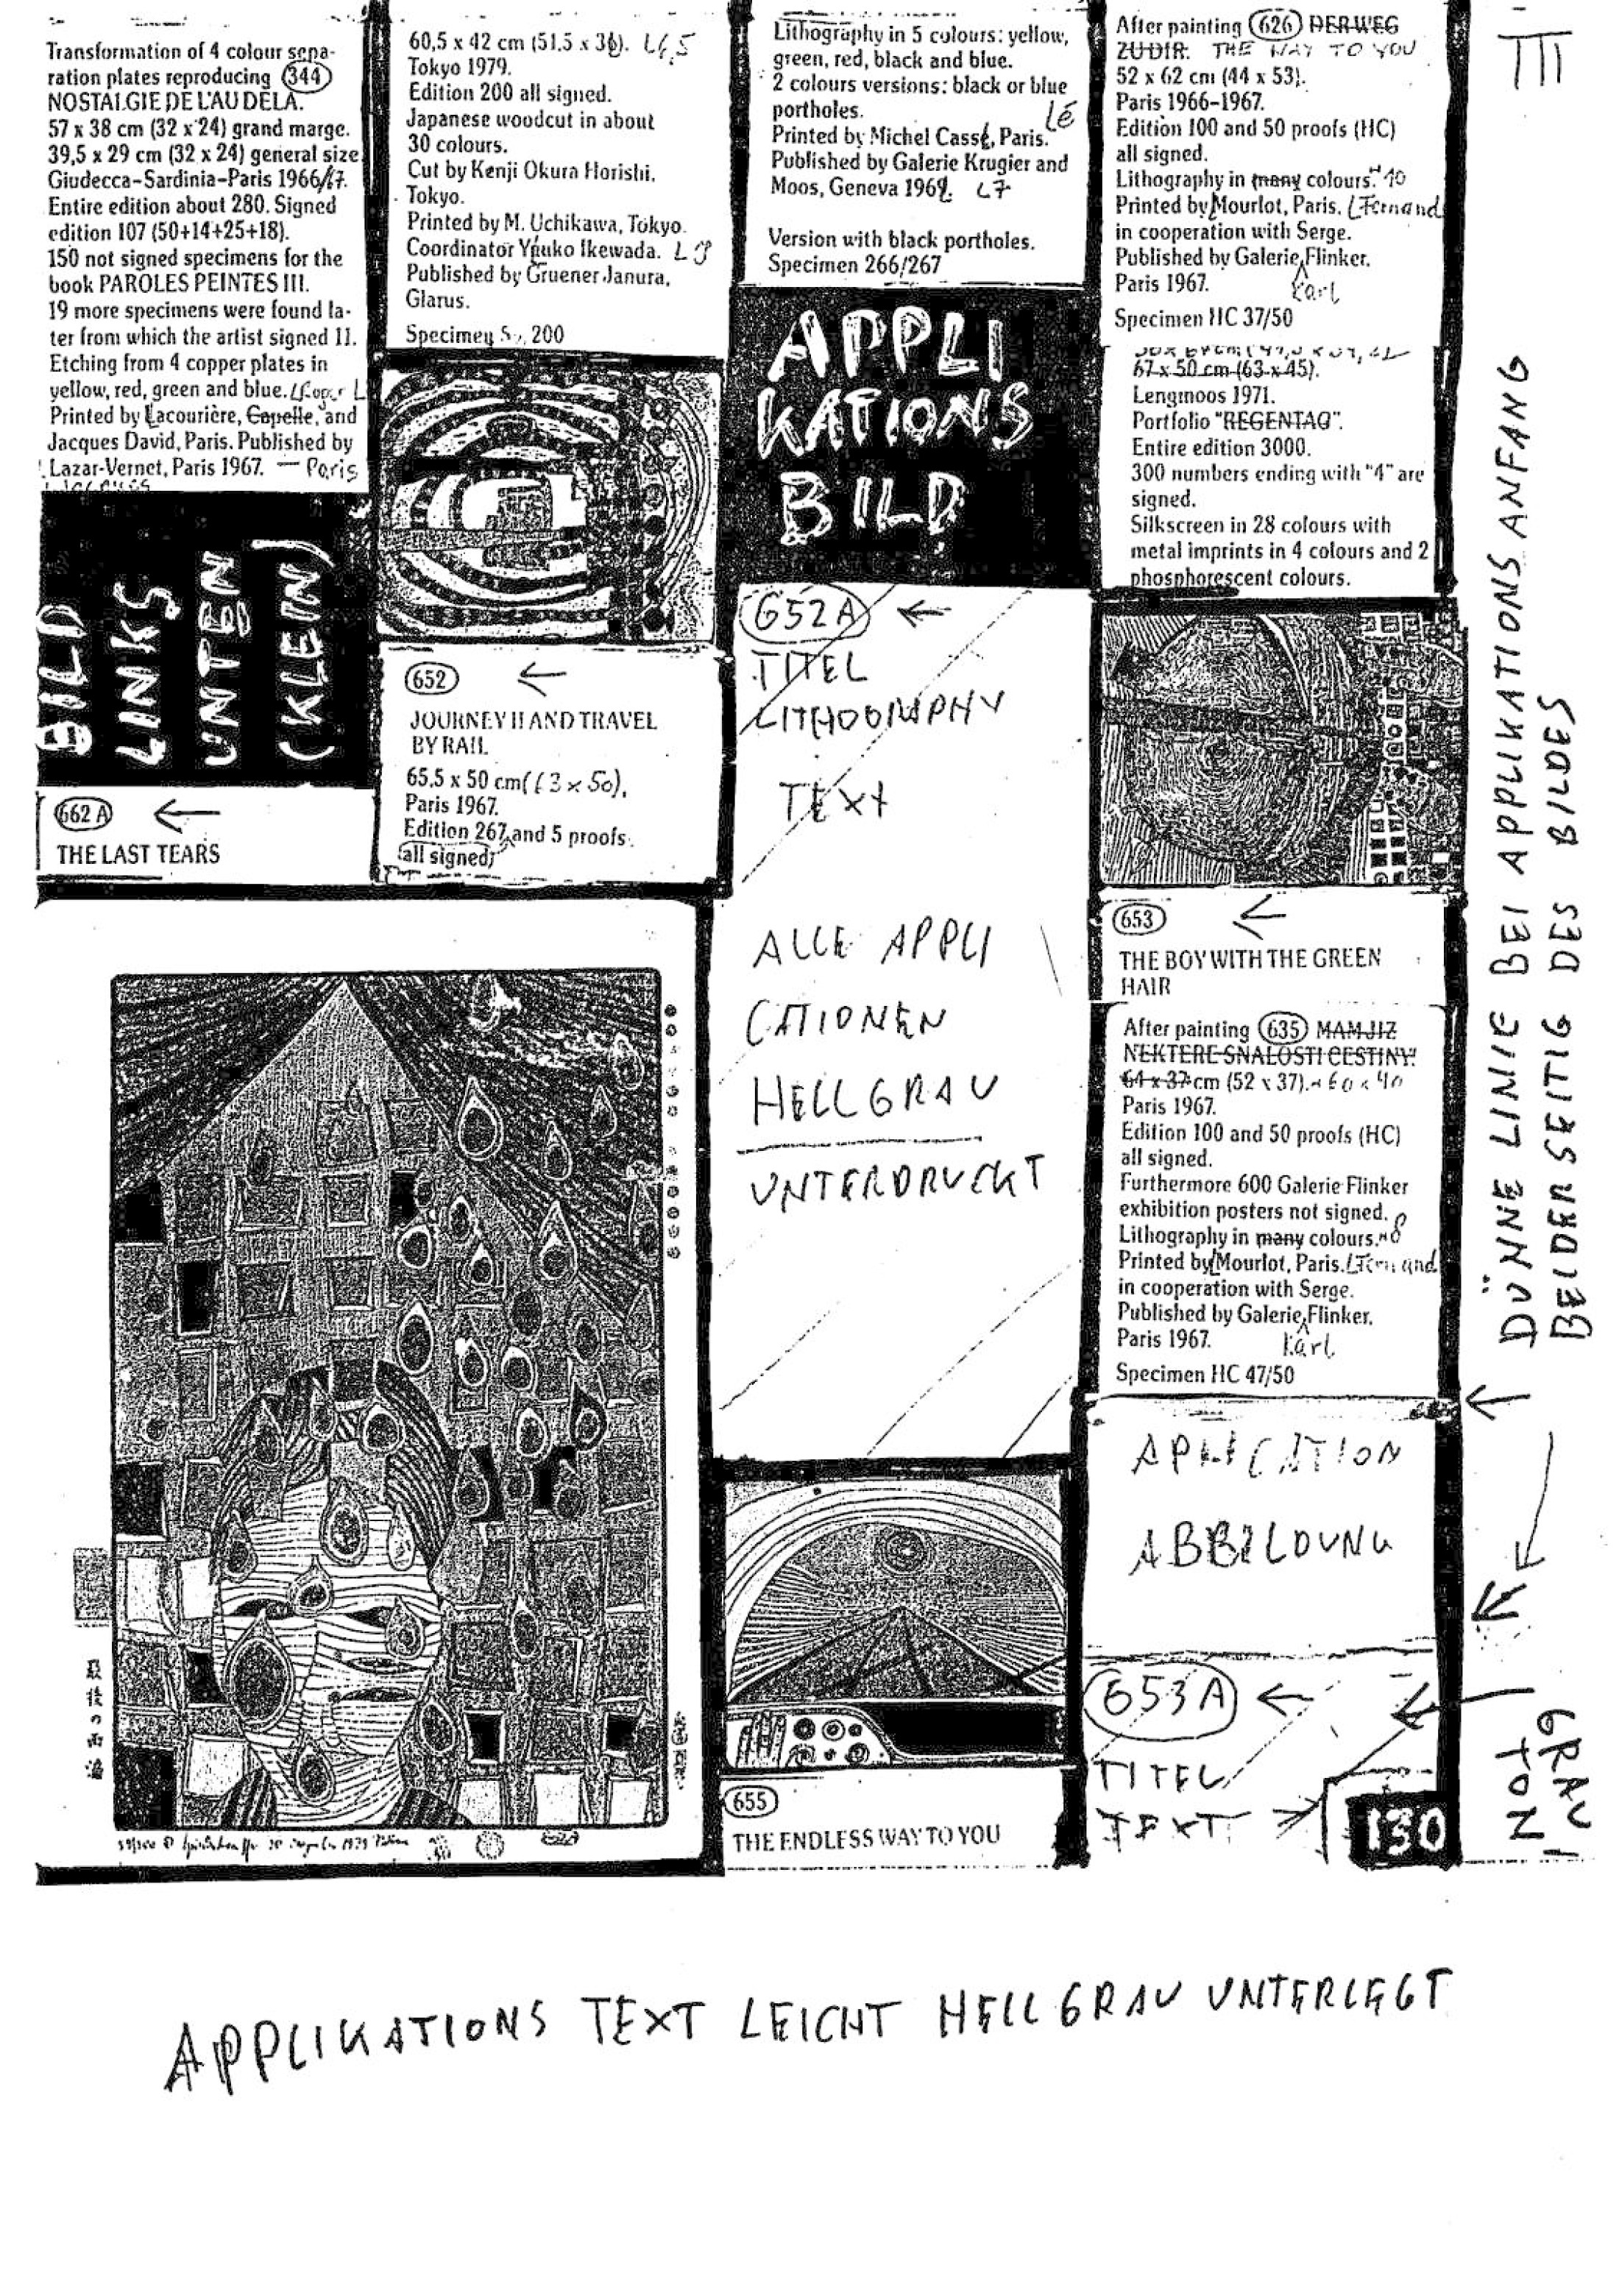 Transformation of 4 colour sepa-
ration plates reproducing 344
NOSTALGIE DE L'AU DELA.
57 x 38 cm (32 x 24) grand marge.
39,5 x 29 cm (32 x 24) general size
Giudecca-Sardinia-Paris 1966/67.
Entire edition about 280. Signed
edition 107 (50+14+25+18).
150 not signed specimens for the
book PAROLES PEINTES III.
19 more specimens were found la-
ter from which the artist signed 11.
Etching from 4 copper plates in
yellow, red, green and blue.
Printed by Lacourière, Capelle, and
Jacques David, Paris. Published by
Lazar-Vernet, Paris 1967. — Paris
BILD
LINKS
UNTEN
(KLEIN)
662 A ←
THE LAST TEARS
60,5 x 42 cm (51.5 x 36).
Tokyo 1979.
Edition 200 all signed.
Japanese woodcut in about
30 colours.
Cut by Kenji Okura Horishi,
Tokyo.
Printed by M. Uchikawa, Tokyo.
Coordinator Yuuko Ikewada.
Published by Gruener Janura,
Glarus.
Specimen 200
652 ←
JOURNEY II AND TRAVEL
BY RAIL
65,5 x 50 cm (63 x 50),
Paris 1967.
Edition 267 and 5 proofs
all signed
最後の
Lithography in 5 colours: yellow,
green, red, black and blue.
2 colours versions: black or blue
portholes.
Printed by Michel Cassé, Paris.
Published by Galerie Krugier and
Moos, Geneva 1967. L7
Version with black portholes.
Specimen 266/267
APPLI
KATIONS
BILD
652A ←
TITEL
LITHOGRAPHY
TEXT
ALLE APPLI
CATIONEN
HELLGRAU
UNTERDRUCKT
655
THE ENDLESS WAY TO YOU
After painting 626 DER WEG
ZU DIR. THE WAY TO YOU
52 x 62 cm (44 x 53).
Paris 1966-1967.
Edition 100 and 50 proofs (HC)
all signed.
Lithography in many colours. 10
Printed by Mourlot, Paris. Fernand
in cooperation with Serge.
Published by Galerie Flinker,
Paris 1967. Karl
Specimen HC 37/50
67 x 50 cm (63 x 45).
Lengmoos 1971.
Portfolio "REGENTAG".
Entire edition 3000.
300 numbers ending with "4" are
signed.
Silkscreen in 28 colours with
metal imprints in 4 colours and 2
phosphorescent colours.
653 ←
THE BOY WITH THE GREEN
HAIR
After painting 635 MAM JIZ
NEKTERE SNALOSTI CESTINY.
64 x 37 cm (52 x 37). 60 x 40
Paris 1967.
Edition 100 and 50 proofs (HC)
all signed.
Furthermore 600 Galerie Flinker
exhibition posters not signed.
Lithography in many colours. 8
Printed by Mourlot, Paris. Fernand
in cooperation with Serge.
Published by Galerie Flinker,
Paris 1967. Karl
Specimen HC 47/50
APLICATION
ABBILDUNG
653A ←
TITEL
TEXT
130
III
DÜNNE LINIE BEI APPLIKATIONS ANFANG
BEIDERSEITIG DES BILDES
NOT
GRAU
APPLIKATIONS TEXT LEICHT HELLGRAU UNTERLEGT